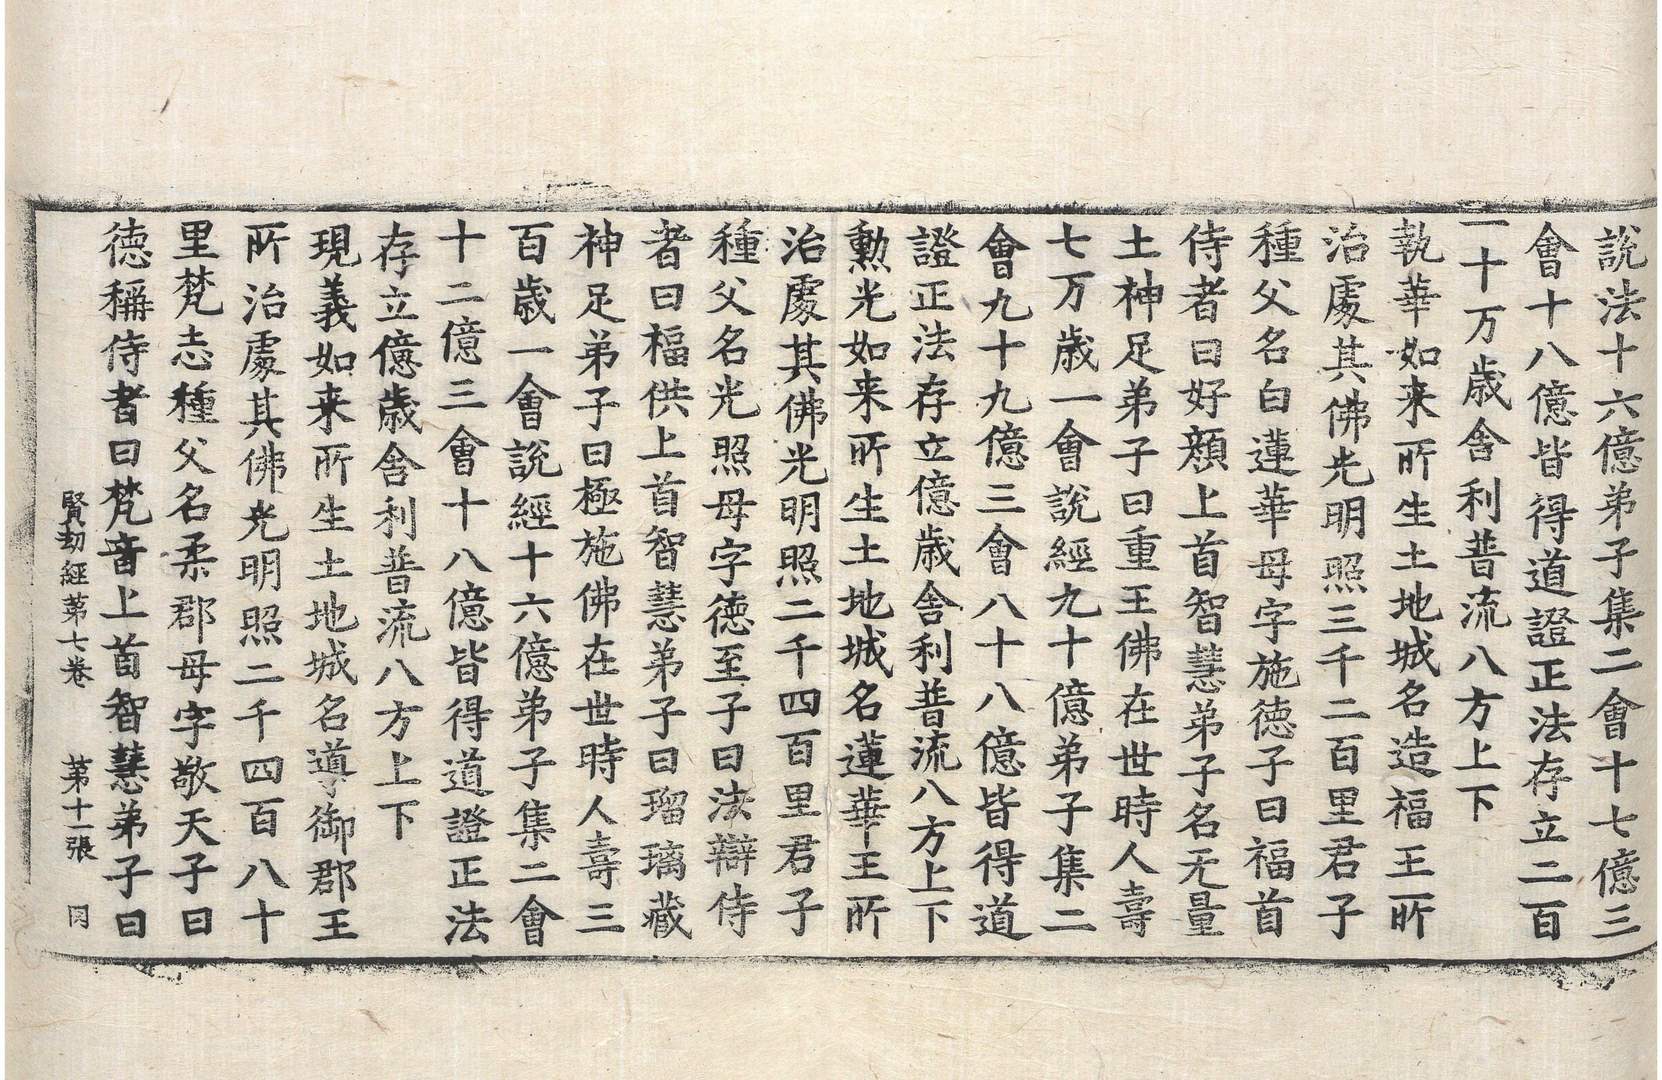 説法十六億弟子集二會十七億三
會十八億皆得道證正法存立二百
一十万歳舎利普流八方上下
執華如来所生土地城名造福王所
治處其佛光明照三千二百里君子
種父名白蓮華母字施徳子曰福首
侍者曰好顔上首智慧弟子名无量
土神足弟子曰重王佛在世時人壽
七万歳一會説經九十億弟子集二
會九十九億三會八十八億皆得道
證正法存立億歳舎利普流八方上下
勲光如来所生土地城名蓮華王所
治處其佛光明照二千四百里君子
種父名光照母字徳至子曰法辯侍
者曰福供上首智慧弟子曰瑠璃藏
神足弟子曰極施佛在世時人壽三
百歳一會説經十六億弟子集二會
十二億三會十八億皆得道證正法
存立億歳舎利普流八方上下
現義如来所生土地城名導御郡王
所治處其佛光明照二千四百八十
里梵志種父名柔郡母字敬天子曰
徳稱侍者曰梵音上首智慧弟子曰
賢劫經第七卷 第十一張 冈